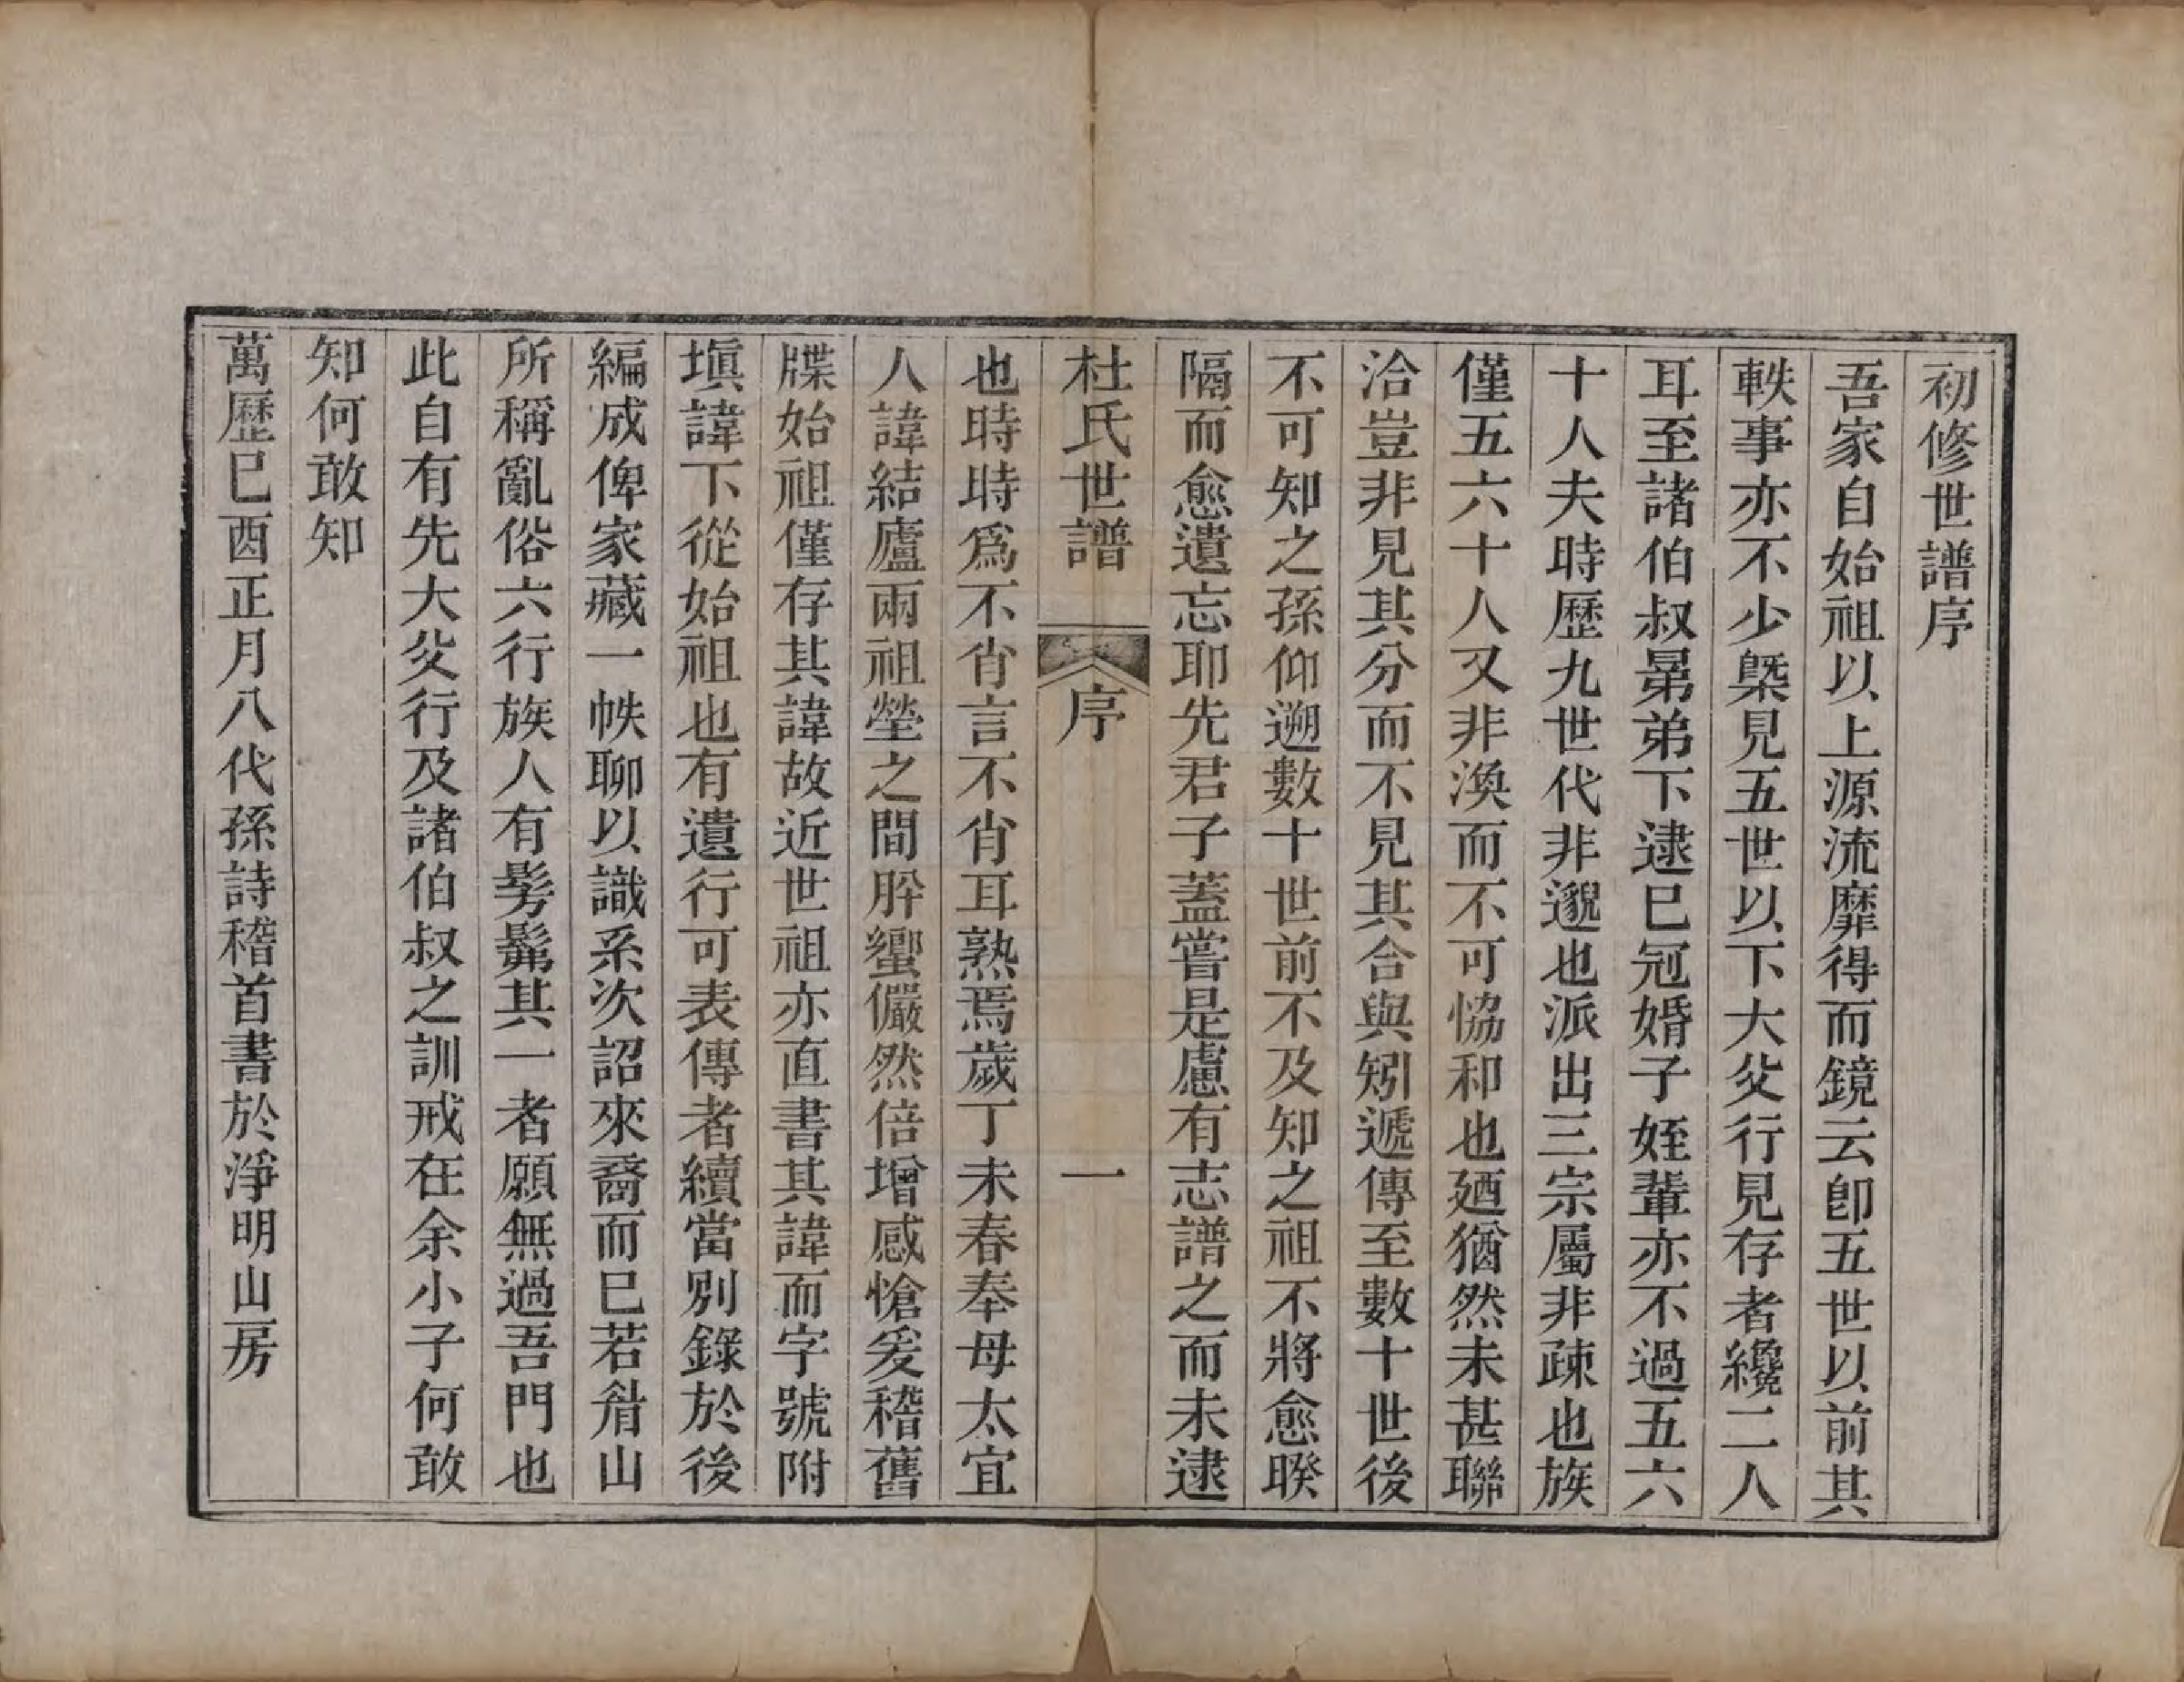 初修世譜序
吾家自始祖以上源流靡得而鏡云卽五世以前其
軼事亦不少槩見五世以下大父行見存者纔二人
耳至諸伯叔晜弟下逮巳冠婚子姪輩亦不過五六
十人夫時歷九世代非邈也派出三宗屬非疎也族
僅五六十人又非渙而不可恊和也廼猶然未甚聯
洽豈非見其分而不見其合與矧遞傳至數十世後
不可知之孫仰遡數十世前不及知之祖不將愈暌
隔而愈遺忘耶先君子蓋嘗是慮有志譜之而未逮
杜氏世譜 序 一
也時時爲不肖言不肖耳熟焉歲丁未春奉母太宜
人諱結廬兩祖塋之間肸蠁儼然倍增感愴爰稽舊
牒始祖僅存其諱故近世祖亦直書其諱而字號附
塡諱下從始祖也有遺行可表傳者續當別錄於後
編成俾家藏一帙聊以識系次詔來裔而巳若眉山
所稱亂俗六行族人有髣髴其一者願無過吾門也
此自有先大父行及諸伯叔之訓戒在余小子何敢
知何敢知
萬歷巳酉正月八代孫詩稽首書於淨明山房